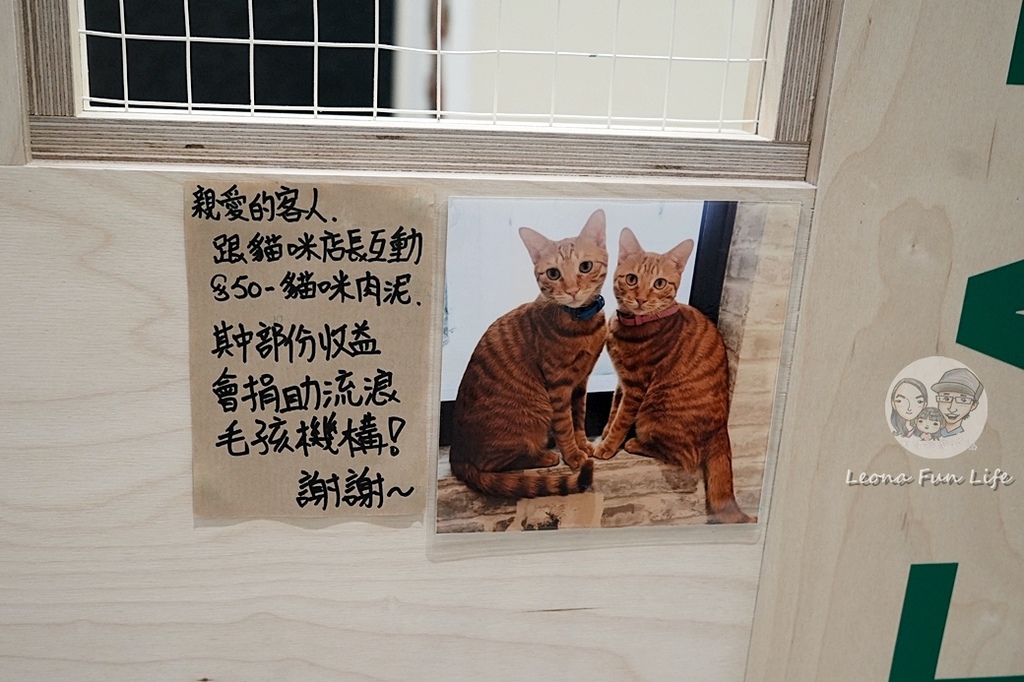 親愛的客人.
跟貓咪店長互動
$50-貓咪肉泥.
其中部份收益
會捐助流浪
毛孩機構!
謝謝~
Leona Fun Life